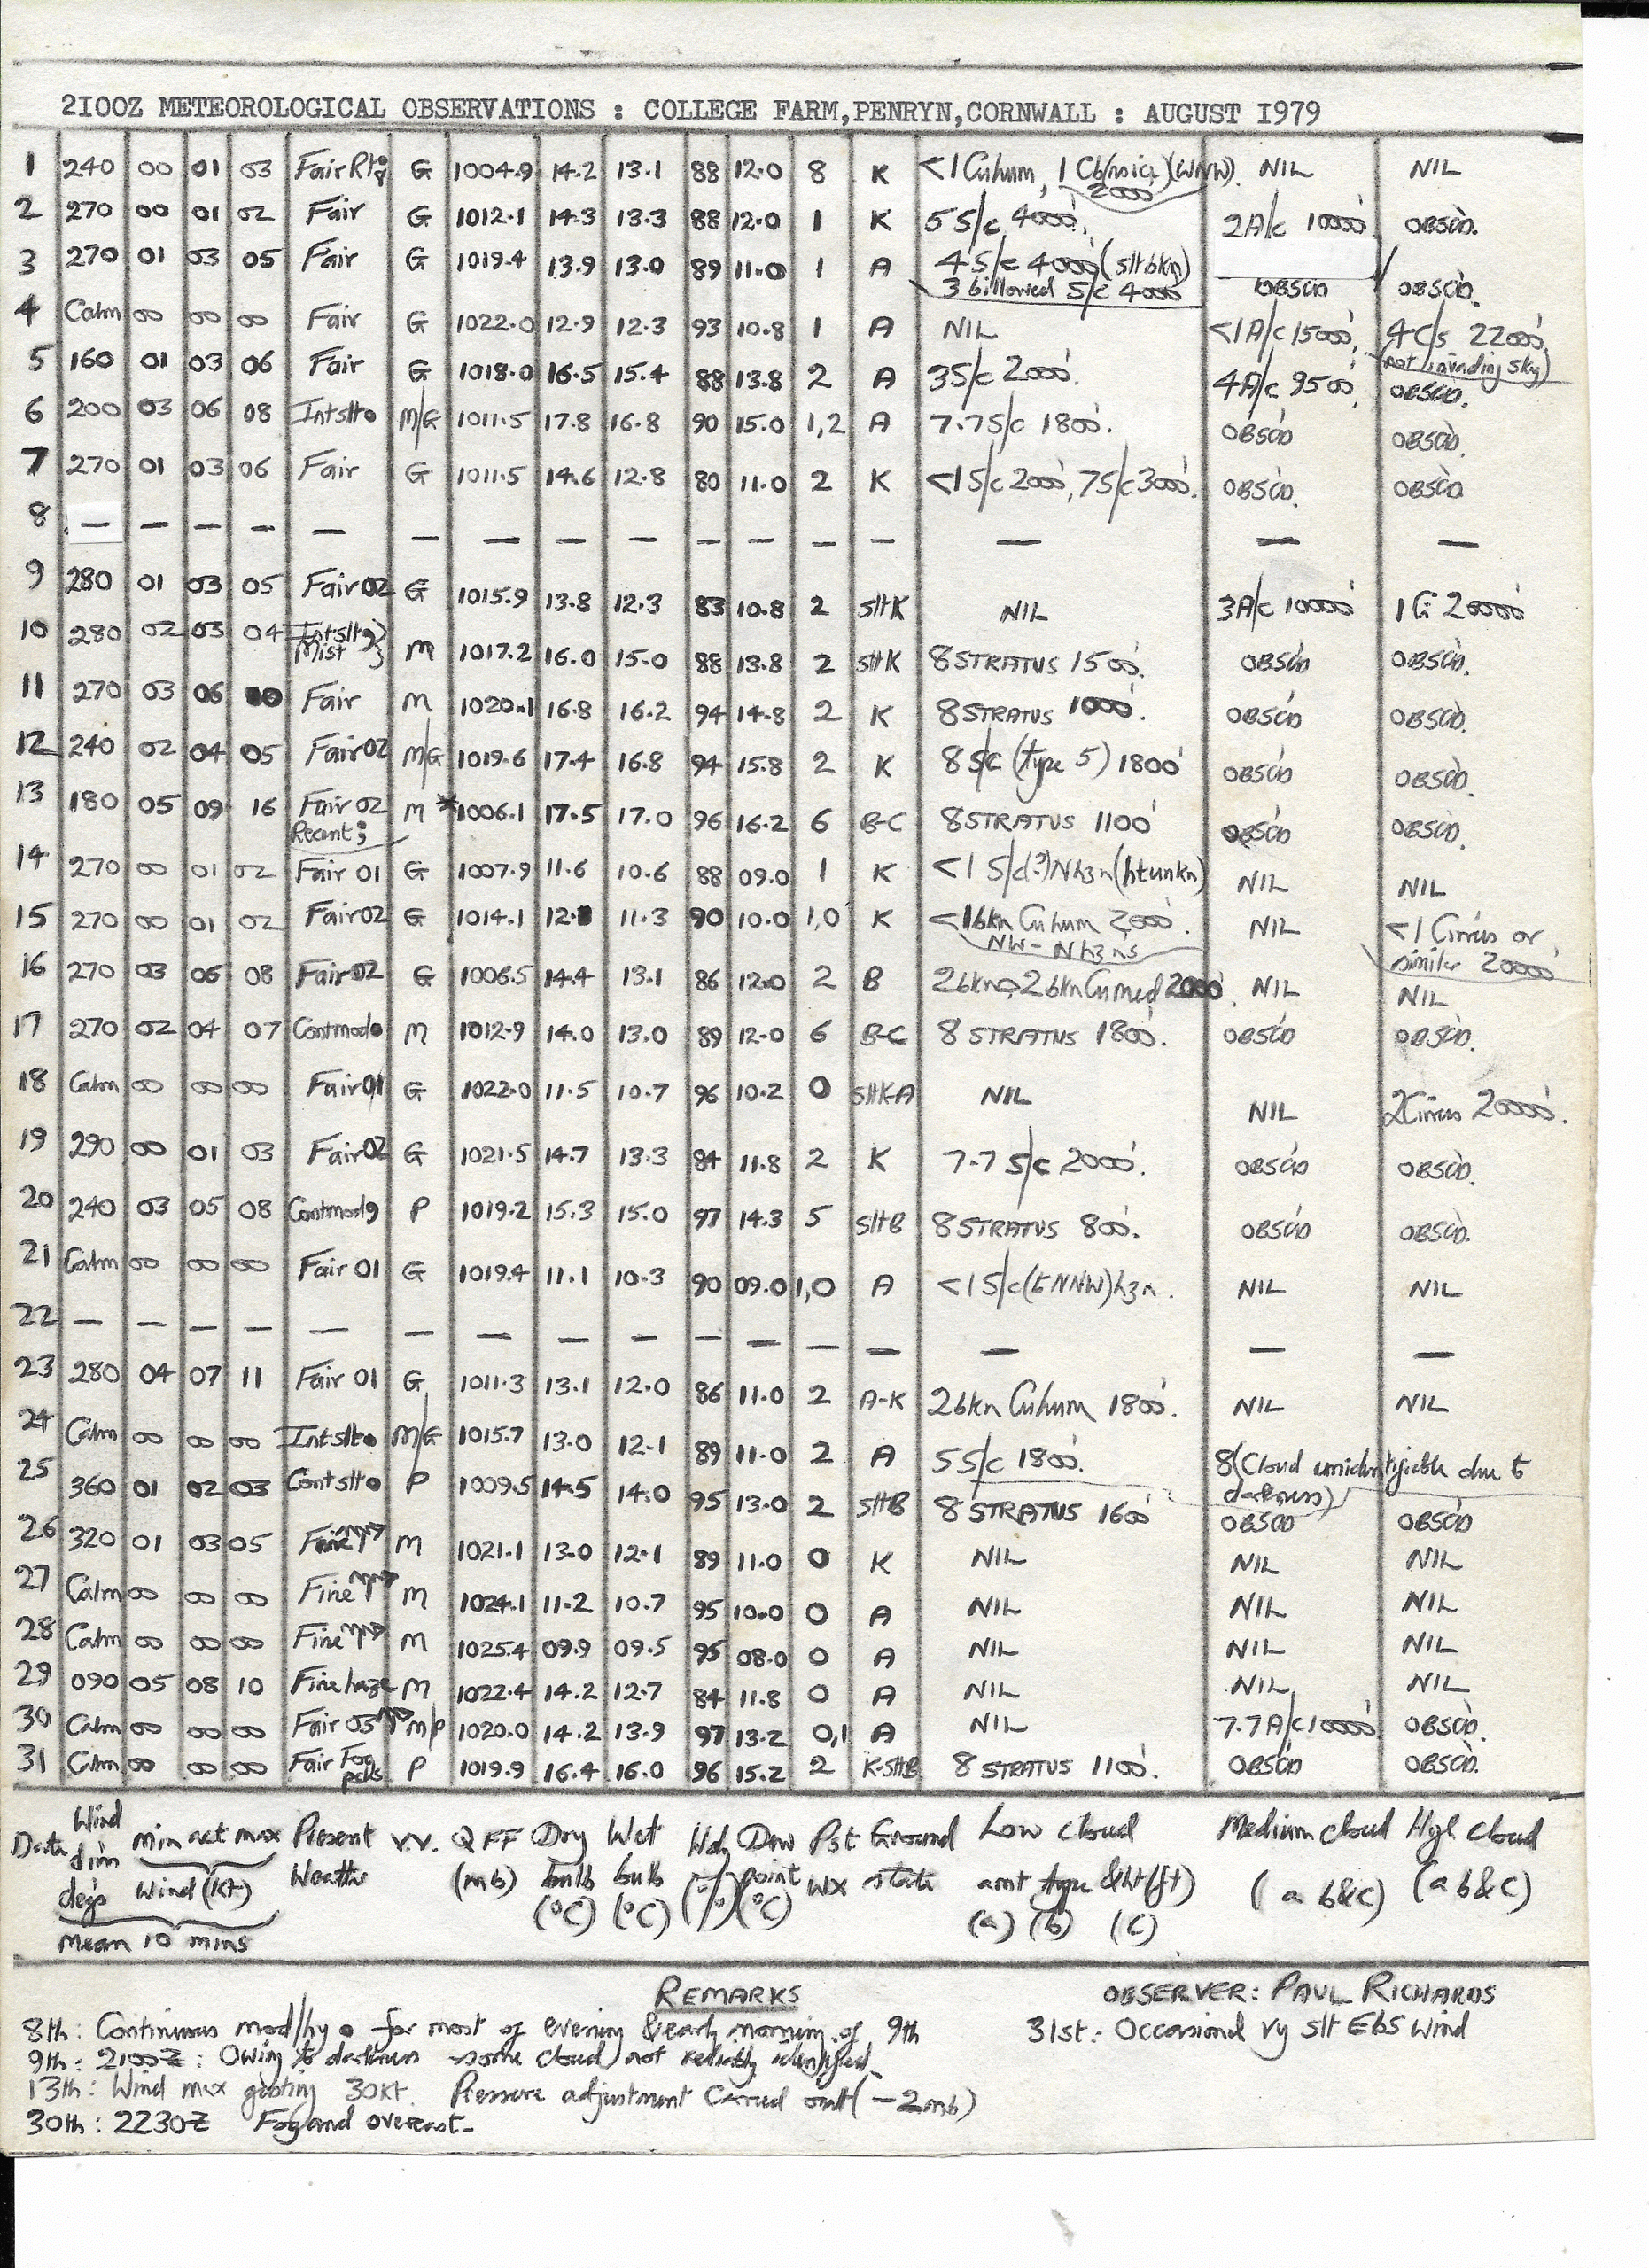 2I00Z METEOROLOGICAL OBSERVATIONS : COLLEGE FARM,PENRYN,CORNWALL : AUGUST I979
1 240 00 01 03 Fair G 1004.9 14.2 13.1 88 12.0 8 K <1 Cuhum, 1 Cb (WNW) 2000' NIL NIL
2 270 00 01 02 Fair G 1012.1 14.3 13.3 88 12.0 1 K 5 S/c 4000'. 2A/c 10000' OBSCD.
3 270 01 03 05 Fair G 1019.4 13.9 13.0 89 11.0 1 A 4S/c 4000' (slt bkn)
3 billowed S/c 4000' OBSCD OBSCD.
4 Calm 00 00 00 Fair G 1022.0 12.9 12.3 93 10.8 1 A NIL <1 A/c 15000', 4 C/s 22000'
(not invading sky)
5 160 01 03 06 Fair G 1018.0 16.5 15.4 88 13.8 2 A 3S/c 2000'. 4A/c 9500' OBSCD.
6 200 03 06 08 Intslt● M/G 1011.5 17.8 16.8 90 15.0 1,2 A 7.7S/c 1800'. OBSCD OBSCD.
7 270 01 03 06 Fair G 1011.5 14.6 12.8 80 11.0 2 K <1 S/c 2000', 7S/c 3000'. OBSCD. OBSCD
8 — — — — — — — — — — — — — — — —
9 280 01 03 05 Fair 02 G 1015.9 13.8 12.3 83 10.8 2 sltK NIL 3A/c 10000' 1 Ci 20000'
10 280 02 03 04 Intslt Mist M 1017.2 16.0 15.0 88 13.8 2 sltK 8 STRATUS 1500'. OBSCD OBSCD.
11 270 03 06 10 Fair M 1020.1 16.8 16.2 94 14.8 2 K 8 STRATUS 1000'. OBSCD OBSCD.
12 240 02 04 05 Fair 02 M/G 1019.6 17.4 16.8 94 15.8 2 K 8 S/c (type 5) 1800' OBSCD OBSCD.
13 180 05 09 16 Fair 02 M *1006.1 17.5 17.0 96 16.2 6 B-C 8 STRATUS 1100' OBSCD OBSCD.
Recent ;
14 270 00 01 02 Fair 01 G 1007.9 11.6 10.6 88 09.0 1 K <1 S/c(?)N hzn (ht unkn) NIL NIL
15 270 00 01 02 Fair 02 G 1014.1 11.3 90 10.0 1,0 K <1 bkn Cuhum 2000'. NIL <1 Cirrus or
NW - N hzns similar 20000'
16 270 03 06 08 Fair 02 G 1006.5 14.4 13.1 86 12.0 2 B 2 bkn Cumed 2000'. NIL NIL
17 270 02 04 07 Contmod● M 1012.9 14.0 13.0 89 12.0 6 B-C 8 STRATUS 1800'. OBSCD OBSCD.
18 Calm 00 00 00 Fair 01 G 1022.0 11.5 10.7 96 10.2 0 sltK-A NIL NIL 2Cirrus 20000'.
19 290 00 01 03 Fair 02 G 1021.5 14.7 13.3 84 11.8 2 K 7.7 S/c 2000'. OBSCD OBSCD.
20 240 03 05 08 Contmod, P 1019.2 15.3 15.0 97 14.3 5 sltB 8 STRATUS 800'. OBSCD OBSCD.
21 Calm 00 00 00 Fair 01 G 1019.4 11.1 10.3 90 09.0 1,0 A <1 S/c (to NNW) hzn. NIL NIL
22 — — — — — — — — — — — — — — — —
23 280 04 07 11 Fair 01 G 1011.3 13.1 12.0 86 11.0 2 A-K 2bkn Cuhum 1800'. NIL NIL
24 Calm 00 00 00 Intslt● M/G 1015.7 13.0 12.1 89 11.0 2 A 5 S/c 1800'. 8(Cloud unidentifiable due to
darkness)
25 360 01 02 03 Contslt● P 1009.5 14.5 14.0 95 13.0 2 sltB 8 STRATUS 1600' OBSCD OBSCD
26 320 01 03 05 Fine M 1021.1 13.0 12.1 89 11.0 0 K NIL NIL NIL
27 Calm 00 00 00 Fine M 1024.1 11.2 10.7 95 10.0 0 A NIL NIL NIL
28 Calm 00 00 00 Fine M 1025.4 09.9 09.5 95 08.0 0 A NIL NIL NIL
29 090 05 08 10 Fine haze M 1022.4 14.2 12.7 84 11.8 0 A NIL NIL NIL
30 Calm 00 00 00 Fair 03 M/P 1020.0 14.2 13.9 97 13.2 0,1 A NIL 7.7 A/c 10000' OBSCD.
31 Calm 00 00 00 Fair Fog pchs P 1019.9 16.4 16.0 96 15.2 2 K-sltB 8 STRATUS 1100'. OBSCD OBSCD.
Date Wind dirn degs min act max Wind (kt) Present Weather V.V. QFF (mb) Dry bulb (°C) Wet bulb (°C) Hdy (%) Dew point (°C) Pst Wx Ground state Low cloud amt type &ht(ft) (a) (b) (c) Medium cloud (a b&c) High cloud (a b&c)
Mean 10 mins
REMARKS OBSERVER: PAUL RICHARDS
8th: Continuous mod/hvy ● for most of evening & early morning of 9th 31st: Occasional vy slt EbS wind
9th: 2100Z: Owing to darkness some cloud not reliably identified.
13th: Wind max gusting 30kt. Pressure adjustment carried out (-2mb)
30th: 2230Z Fog and overcast.